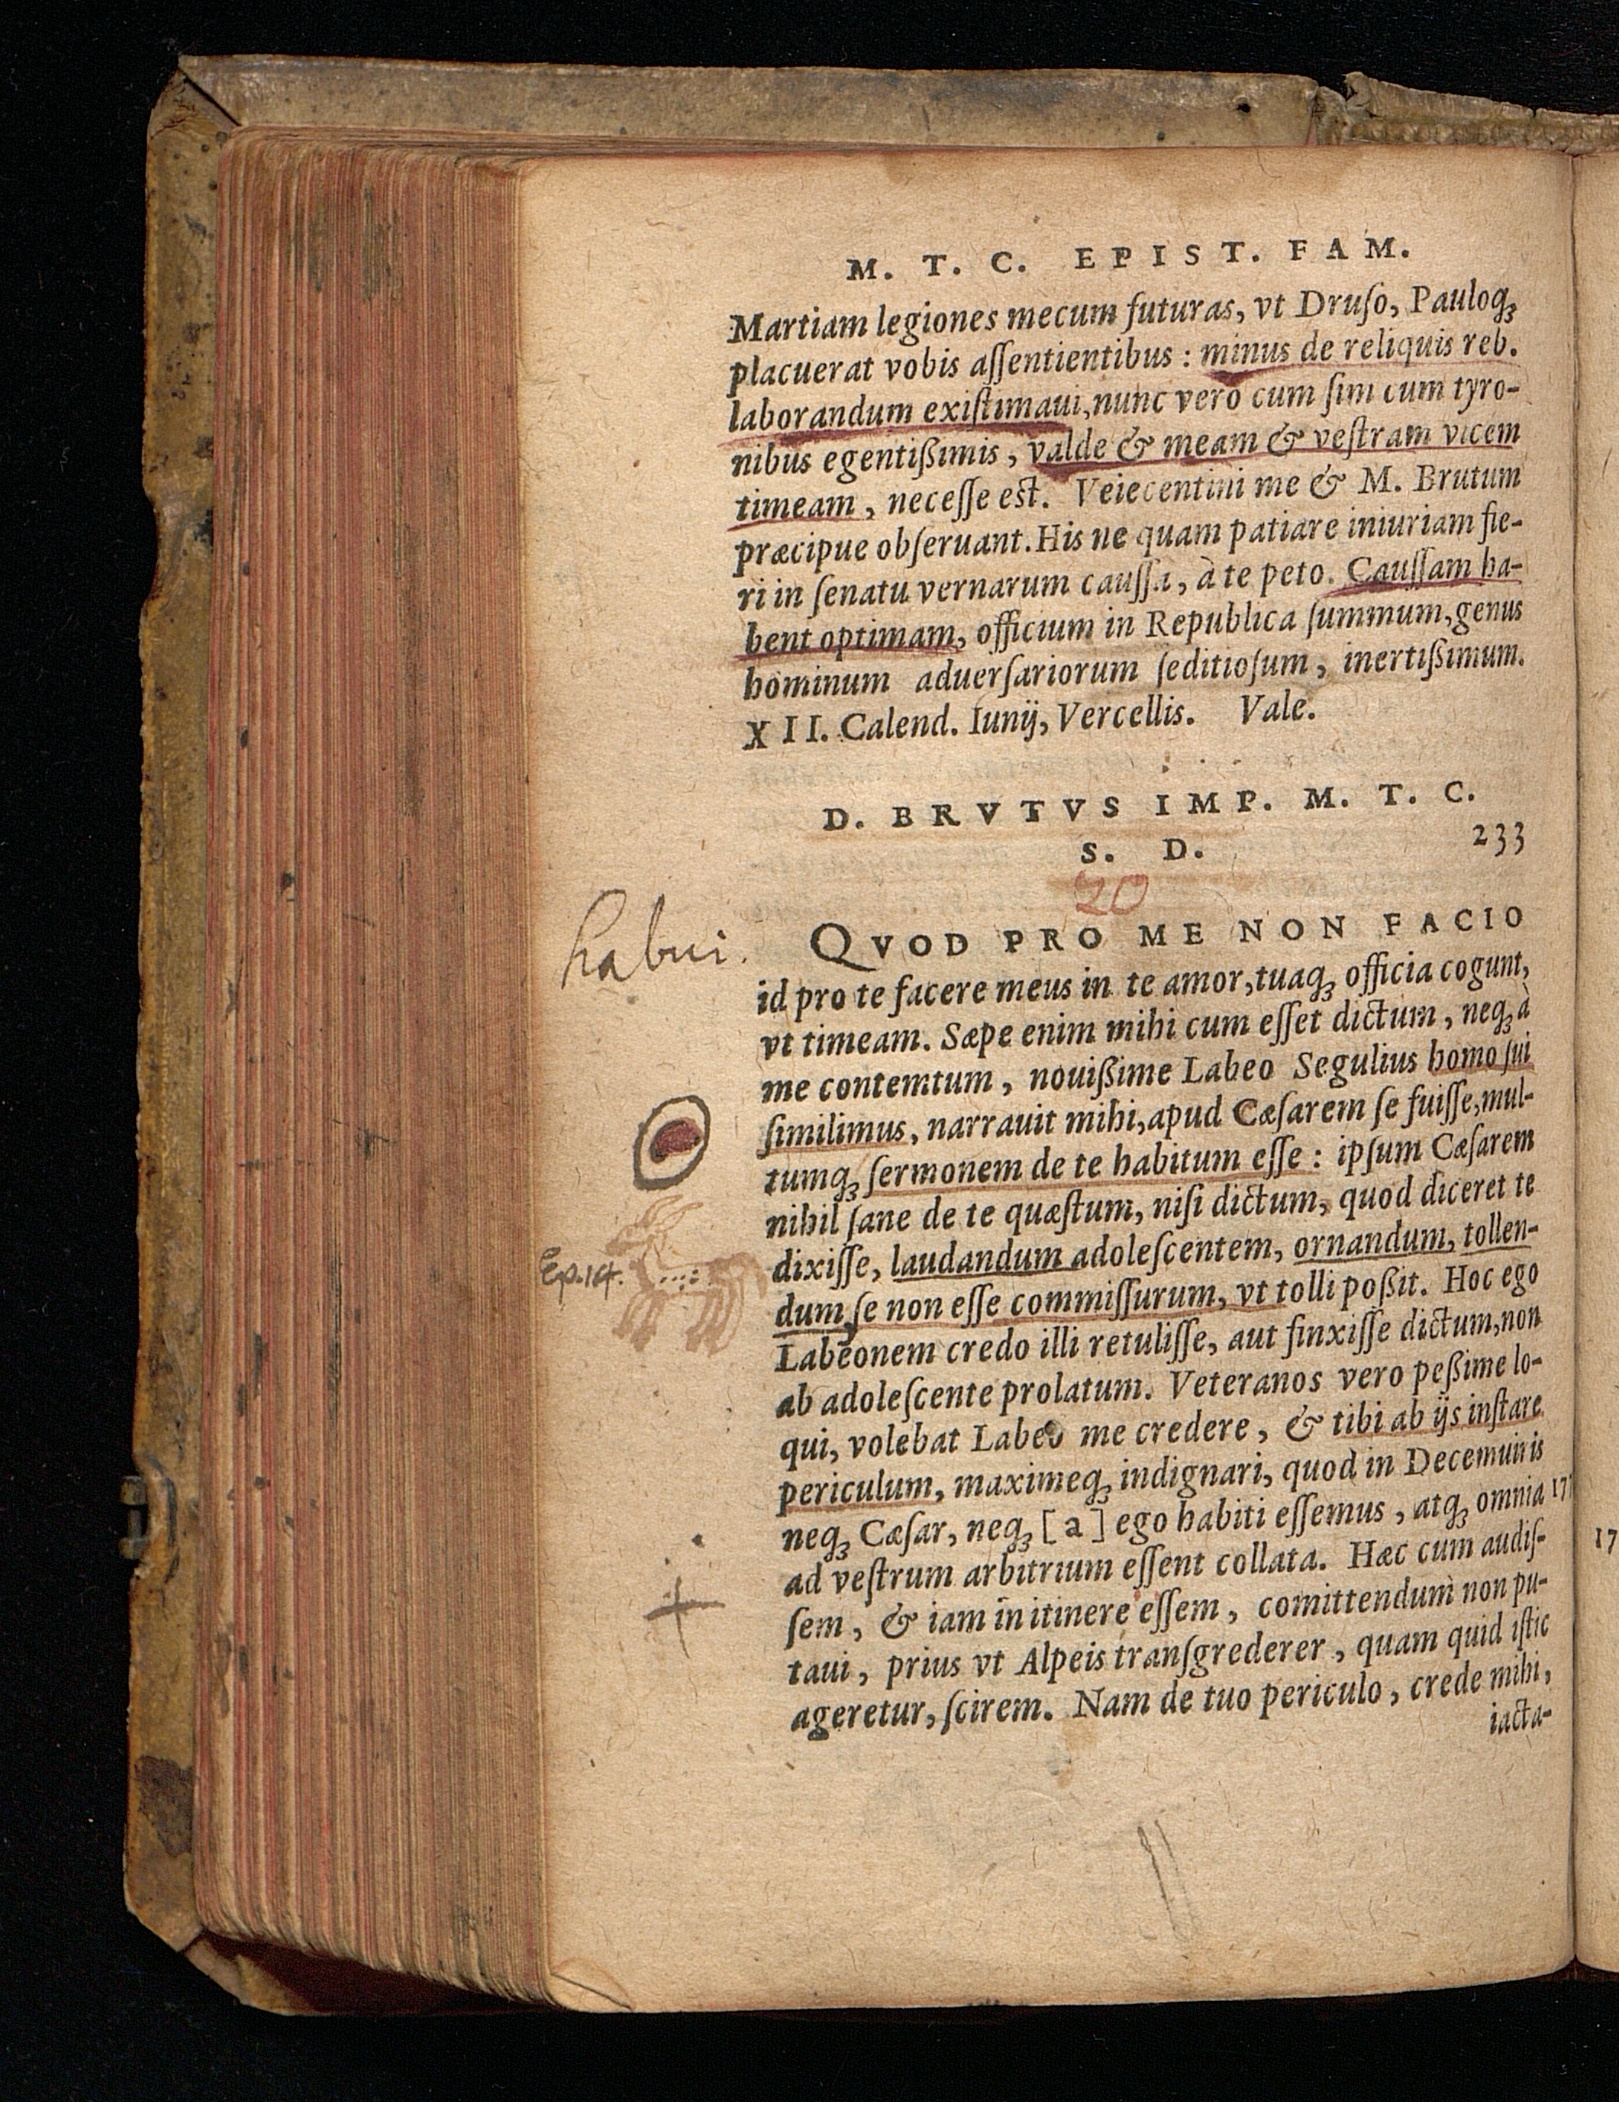 M. T. C. EPIST. FAM.
Martiam legiones mecum futuras, vt Druſo, Pauloq́;
placuerat vobis aſſentientibus : minus de reliquis reb.
laborandum exiſtimaui, nunc vero cum ſim cum tyro-
nibus egentißimis, valde & meam & veſtram vicem
timeam, neceſſe est. Veiecentini me & M. Brutum
præcipue obſeruant. His ne quam patiare iniuriam fie-
ri in ſenatu vernarum cauſſa, à te peto. Cauſſam ha-
bent optimam, officium in Republica ſummum, genus
hominum aduerſariorum ſeditioſum, inertißimum.
XII. Calend. Iunij, Vercellis. Vale.
D. BRVTVS IMP. M. T. C.
S. D. 233
20
habui.
QVOD PRO ME NON FACIO
id pro te facere meus in te amor, tuaq́; officia cogunt,
vt timeam. Sæpe enim mihi cum eſſet dictum, neq́; à
me contemtum, nouißime Labeo Segulius homo ſui
ſimilimus, narrauit mihi, apud Cæſarem ſe fuiſſe, mul-
tumq́; ſermonem de te habitum eſſe : ipſum Cæſarem
nihil ſane de te quæſtum, niſi dictum, quod diceret te
Ep. 14.
dixiſſe, laudandum adoleſcentem, ornandum, tollen-
dum, ſe non eſſe commiſſurum, vt tolli poßit. Hoc ego
Labeonem credo illi retuliſſe, aut finxiſſe dictum, non
ab adoleſcente prolatum. Veteranos vero peßime lo-
qui, volebat Labeo me credere, & tibi ab ijs inſtare
periculum, maximeq́; indignari, quod in Decemuiris
neq́; Cæſar, neq́; [a] ego habiti eſſemus, atq́; omnia 17
ad veſtrum arbitrium eſſent collata. Hæc cum audiſ-
17
ſem, & iam in itinere eſſem, comittendum non pu-
taui, prius vt Alpeis tranſgrederer, quam quid iſtic
ageretur, ſcirem. Nam de tuo periculo, crede mihi,
iacta-